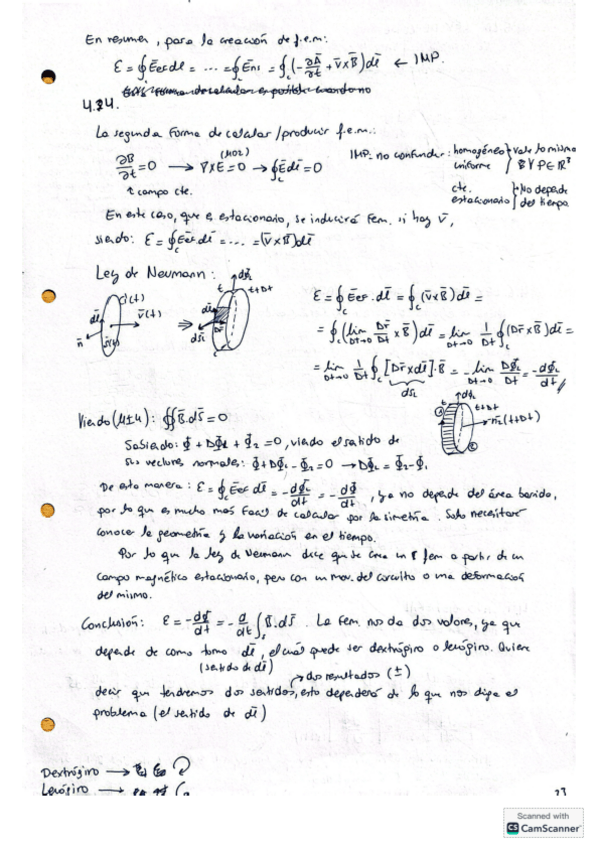 En resumen, para la creación de f.e.m:
ε = ∮ Ēef dl̄ = ... = ∮c Ēns = ∮c (-∂Ā/∂t + v̄×B̄) dl̄ ← IMP.
4.24.
La segunda forma de calcular/producir f.e.m.:
∂B̄/∂t = 0 → ∇×E = 0 → ∮c Ē dl̄ = 0
(M02)
↑ campo cte.
IMP. no confundir: homogéneo uniforme } vale lo mismo
cte. estacionario } No depende del tiempo
En este caso, que es estacionario, se inducirá fem. si hay v̄,
siendo: ε = ∮c Ēef dl̄ = ... = (v̄×B̄) dl̄
Ley de Neumann:
c(t)
v̄(t)
dl̄
n̄
t
t+Dt
ε = ∮c Ēef . dl̄ = ∮c (v̄×B̄) dl̄ =
= ∮c (lim Dt→0 Dr̄/Dt × B̄) dl̄ = lim Dt→0 1/Dt ∮c (Dr̄×B̄) dl̄ =
= lim Dt→0 1/Dt ∮c [Dr̄×dl̄]·B̄ = - lim Dt→0 DΦL/Dt = -dΦL/dt
Viendo (M±4): ∯ B̄.dS̄ = 0
t
t+Dt
Sabiendo: Φ + DΦL + Φ2 = 0, viendo el sentido de
sus vectores normales: Φ + DΦL - Φ2 = 0 → DΦL = Φ2 - Φ1
De esta manera: ε = ∮c Ēef dl̄ = -dΦL/dt = -dΦ/dt, ya no depende del área barrida,
por lo que es mucho más fácil de calcular por la simetría. Solo necesitaré
conocer la geometría y la variación en el tiempo.
Por lo que la ley de Neumann dice que se crea fem a partir de un
campo magnético estacionario, pero con un mov. del circuito o una deformación
del mismo.
Conclusión: ε = -dΦ/dt = -d/dt ∫s B̄.dS̄. La fem. nos da dos valores, ya que
depende de como tomo dl̄, el cuál puede ser dextrógiro o levógiro. Quiere
(sentido de dl̄)
dos resultados (±)
decir que tendremos dos sentidos, esto dependerá de lo que nos diga el
problema (el sentido de dl̄)
Dextrógiro →
Levógiro →
23
Scanned with
CS CamScanner